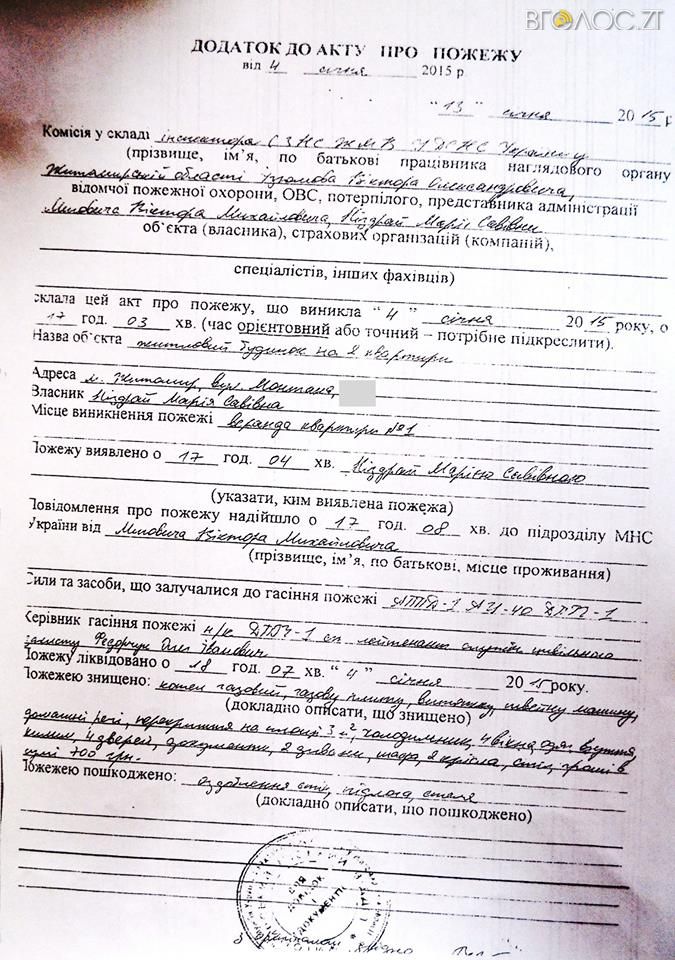 ВГОЛОС.ZT
ДОДАТОК ДО АКТУ ПРО ПОЖЕЖУ
від 4 січня 2015 р
"13" січня 2015 р
Комісія у складі інспектора СЗНС ЖМВ України у
(прізвище, ім’я, по батькові працівника наглядового органу
Житомирській області Віктора Олександровича,
відомчої пожежної охорони, ОВС, потерпілого, представника адміністрації
Віктора Михайловича, Ніздрай Марії Савівни
об’єкта (власника), страхових організацій (компаній),
спеціалістів, інших фахівців)
склала цей акт про пожежу, що виникла "4" січня 2015 року, о
17 год. 03 хв. (час орієнтовний або точний – потрібне підкреслити).
Назва об’єкта житловий будинок на 2 квартири
Адреса м. Житомир, вул. Монтана,
Власник Ніздрай Марія Савівна
Місце виникнення пожежі веранда квартири №1
Пожежу виявлено о 17 год. 04 хв. Ніздрай Марією Савівною
(указати, ким виявлена пожежа)
Повідомлення про пожежу надійшло о 17 год. 08 хв. до підрозділу МНС
України від Віктора Михайловича
(прізвище, ім’я, по батькові, місце проживання)
Сили та засоби, що залучалися до гасіння пожежі АЦ-40 ДПРЧ-1
Керівник гасіння пожежі н/к ДПРЧ-1 ст. лейтенант служби цивільного
захисту Федорчук Олег Іванович
Пожежу ліквідовано о 18 год. 07 хв. "4" січня 2015 року.
Пожежею знищено: котел газовий, газову плиту, витяжку, машину,
(докладно описати, що знищено)
домашні речі, перекриття на площі 3 м² холодильник, 4 вікна, одяг, взуття,
килим, 4 дверей, документи, 2 дивани, шафа, 2 крісла, стіл, гроші в
сумі 700 грн.
Пожежею пошкоджено: оздоблення стін, підлога, стеля
(докладно описати, що пошкоджено)
ДЛЯ
ДОВІДОК
І
ДОКУМЕНТІВ